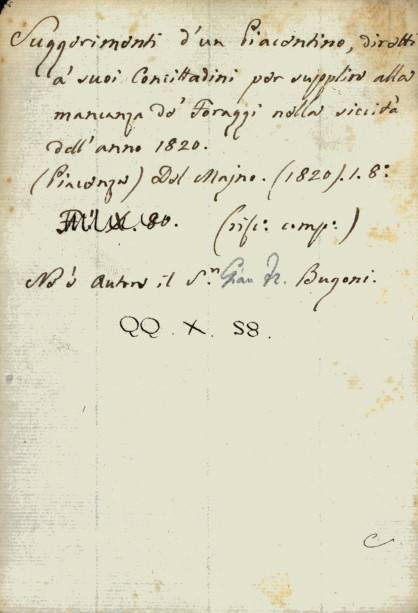 Suggerimenti d'un Piacentino, diretti
a' suoi Concittadini per supplire alla
mancanza de' Foraggi nella siccità
dell'anno 1820.
(Piacenza) Del Majno. (1820). 1. 8:
80. (rifs: comp:)
Ne è Autore il S.r Gian Fr. Bugoni.
QQ. X. 58.